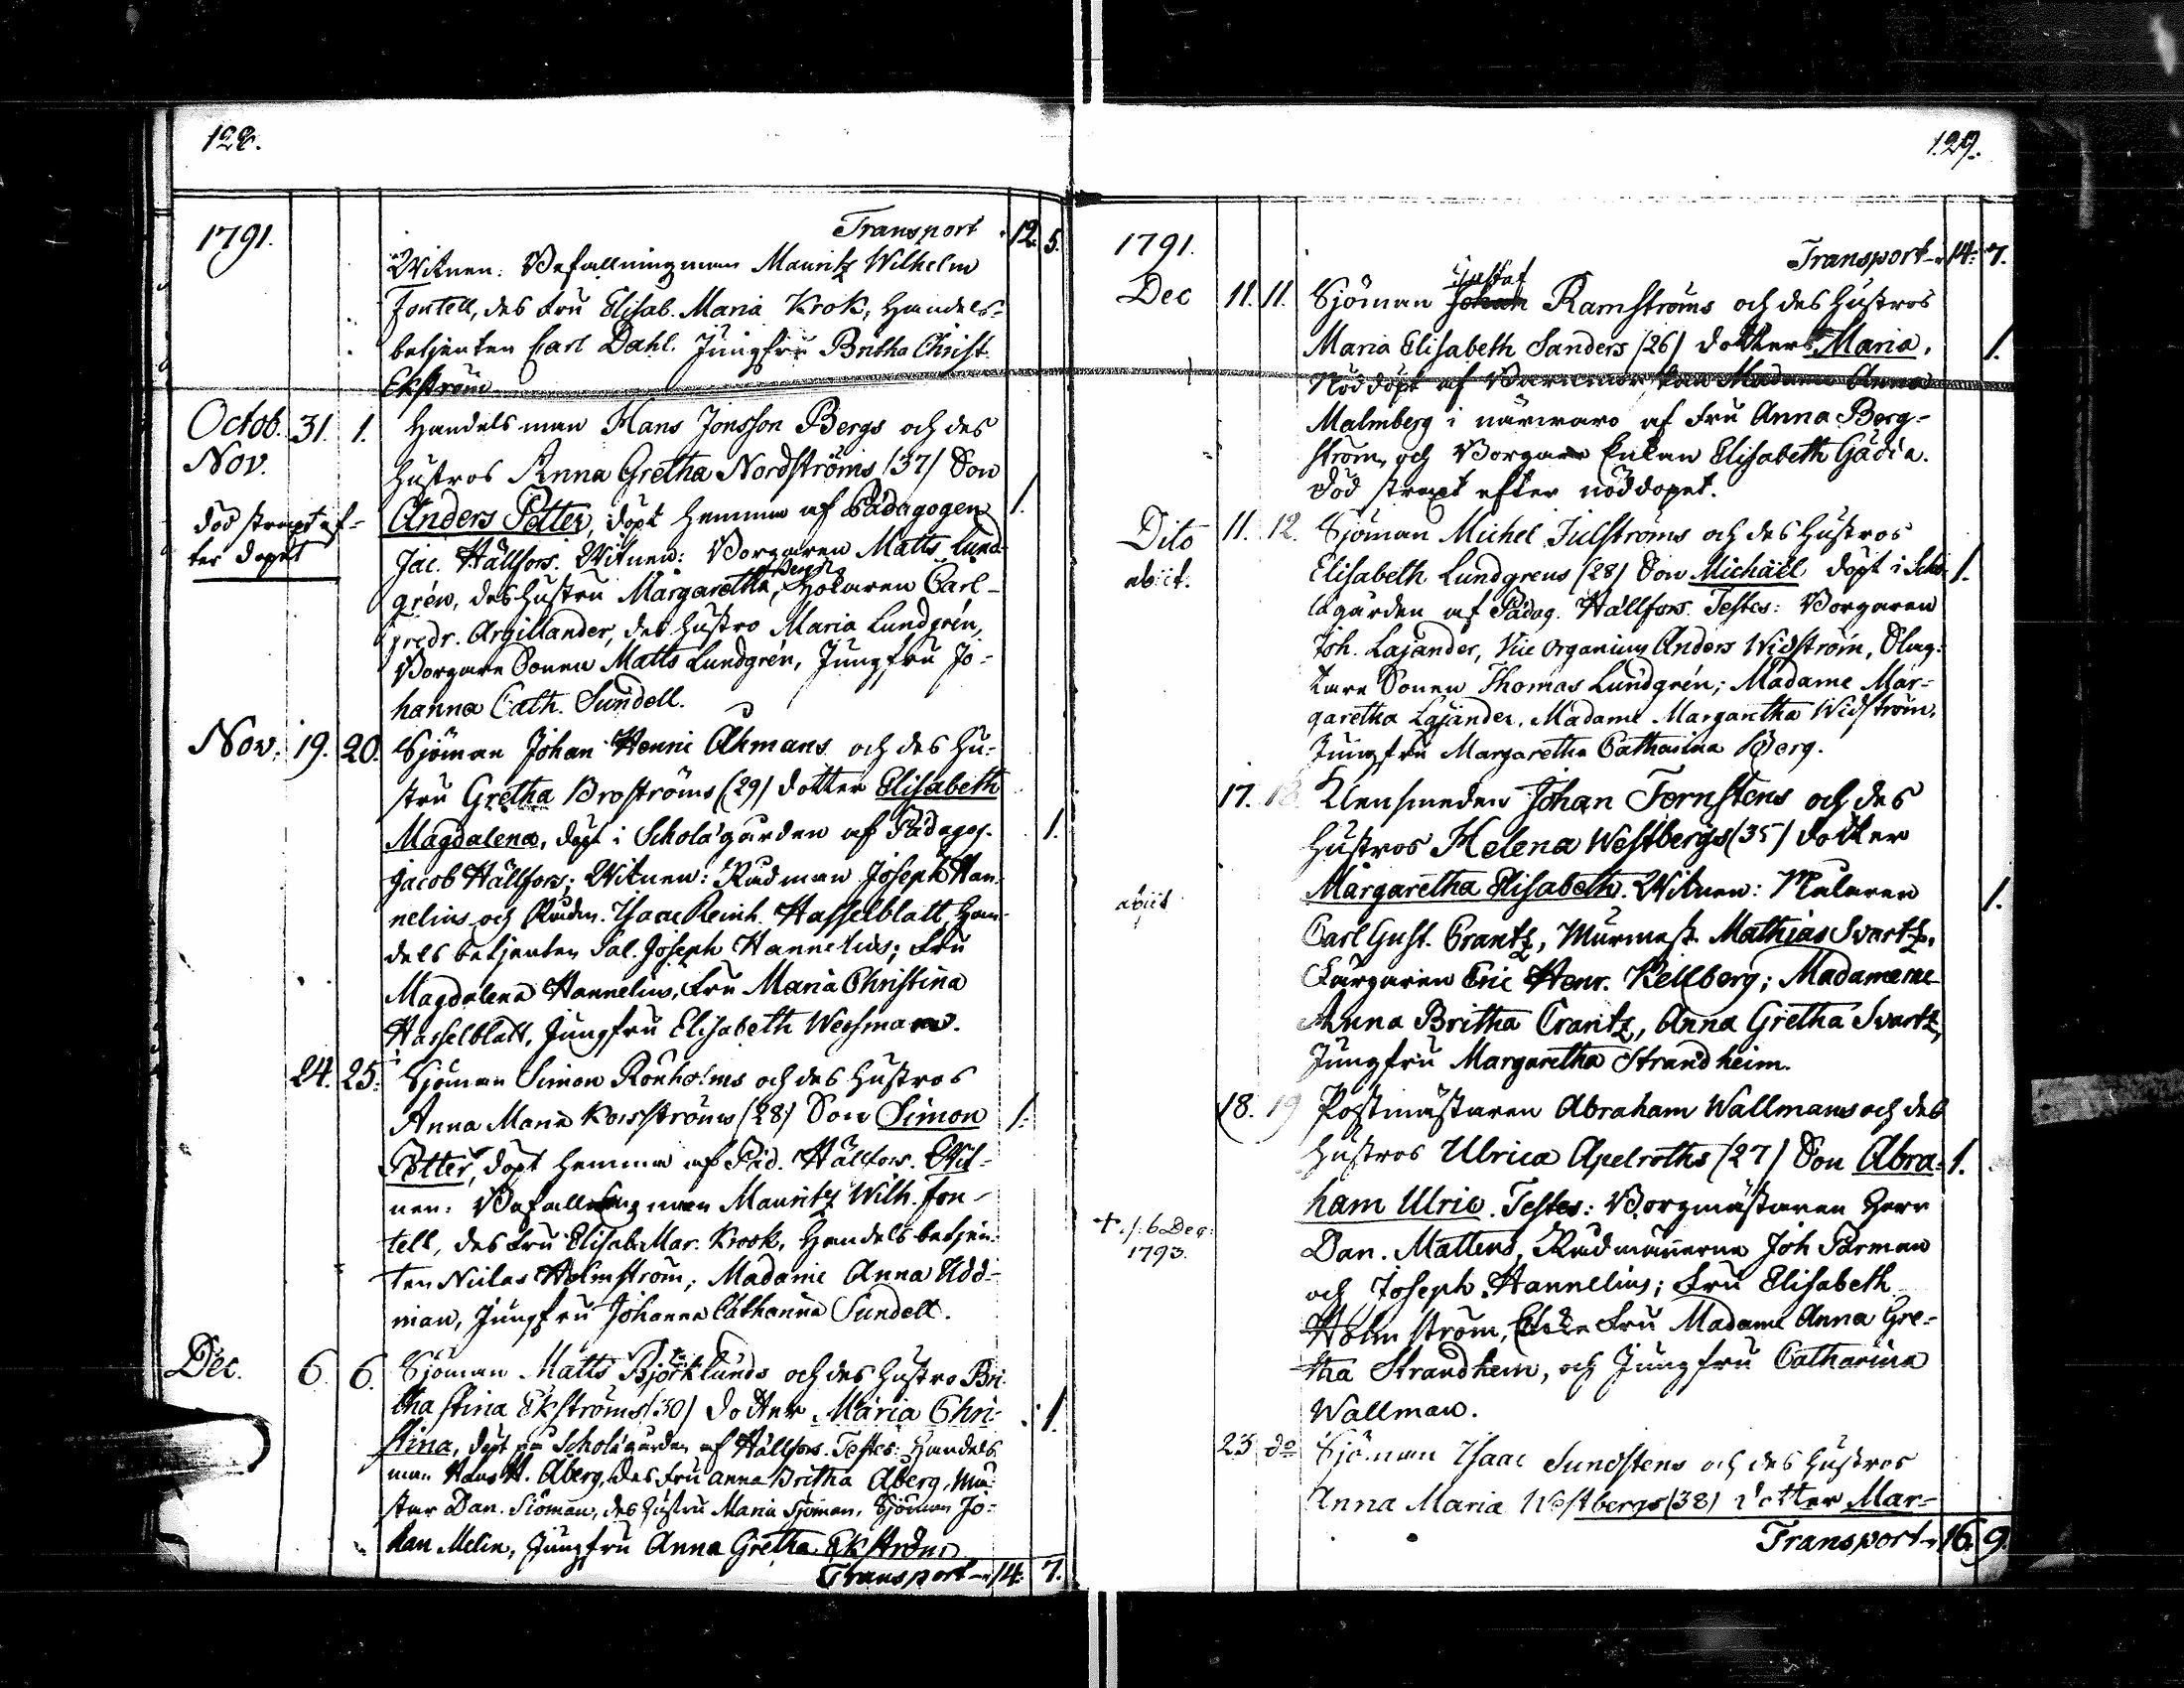 128.
1791.
Transport 12. 5.
Witnen: Befallningman Mauritz Wilhelm
Fontell, des Fru Elisab. Maria Krok, Handels-
betjenten Carl Dahl. Jungfru Britha Christ.
Ekström
Octob. 31. 1. Handelsman Hans Jonsson Bergs och des
Nov.
hustros Anna Gretha Nordströms (37) Son
död straxt ef-
ter dopet
Anders Petter, döpt hemma af Pädagogen 1.
Jac. Hällfors. Witnen: Borgaren Matts Lund-
grén, des hustru Margaretha, Carl
Fredr. Argillander, des hustro Maria Lundgrén,
Borgare Sonen Matts Lundgrén, Jungfru Jo-
hanna Cath. Sundell.
Nov. 19. 20. Sjöman Johan Henric Åhmans och des hu-
stru Gretha Broströms (29) dotter Elisabeth
Magdalena, döpt i Scholægården af Pädagog. 1.
Jacob Hällfors; Witnen: Rådman Joseph Han-
nelius och Rådm. Isaac Reinh. Hasselblatt, Han-
dels betjenten Sal. Joseph Hannelius; Fru
Magdalena Hannelius, Fru Maria Christina
Hasselblatt, Jungfru Elisabeth Wessman.
24. 25. Sjöman Simon Rönholms och des hustros
Anna Maria Korsströms (28) Son Simon 1.
Petter, döpt hemma af Päd. Hällfors. Wit-
nen: Befallningman Mauritz Wilh. Fon-
tell, des Fru Elisab. Mar. Krook, Handels betjen-
ten Niclas Holmström; Madame Anna Udd-
man, Jungfru Johanna Catharina Sundell.
Dec. 6. 6. Sjöman Matts Björklunds och des hustro Bri-
tha Stina Ekströms (30) dotter Maria Chri- 1.
stina, döpt på Scholægården af Hällfors. Testes: Handels
man Hans H. Åberg, des fru Anna Britha Åberg, Mä-
star Dan. Siöman, des hustru Maria Sjöman, Sjöman Jo-
han Melin, Jungfru Anna Gretha Ekström
Transport 14. 7.
129.
1791.
Transport 14. 7.
Gustaf
Dec 11. 11. Sjöman Johan Ramströms och des hustros
Maria Elisabeth Sanders (26) dotter Maria, 1.
Nöddöpt af Barnmorskan Madame Anna
Malmberg i närwaro af Fru Anna Berg-
ström, och Borgare Enkan Elisabeth Gädia.
död straxt efter nöddopet.
Dito 11. 12. Sjöman Michel Julströms och des hustros
abiit.
Elisabeth Lundgrens (28) Son Michaël döpt i Scho- 1.
lægården af Pädag. Hällfors. Testes: Borgaren
Joh. Lajander, Vice Organium Anders Widström, Slag-
tare Sonen Thomas Lundgrén; Madame Mar-
garetha Lajander, Madame Margaretha Widström,
Jungfru Margaretha Catharina Berg.
17. 18. Klensmeden Johan Fernstens och des
hustros Helena Westbergs (35) dotter
abiit
Margaretha Elisabeth. Witnen: Målaren 1.
Carl Gust. Crantz, Murmäst. Mathias Svartz,
Färgaren Eric Henr. Kellberg; Madamerne
Anna Britha Crantz, Anna Gretha Svartz,
Jungfru Margaretha Strandheim.
18. 19 Postmästaren Abraham Wallmans och des
hustros Ulrica Apelroths (27) Son Abra- 1.
ham Ulric. Testes: Borgmästaren Herr
†. /: 6 Dec:
1793.
Dan. Mattens, Rådmännerna Joh Parman
och Joseph Hannelius; Fru Elisabeth
Holmström, Fru Madame Anna Gre-
tha Strandheim, och Jungfru Catharina
Wallman.
23 do Sjöman Isaac Sundstens och des hustros
Anna Maria Westbergs (38) dotter Mar-
Transport 16. 9.